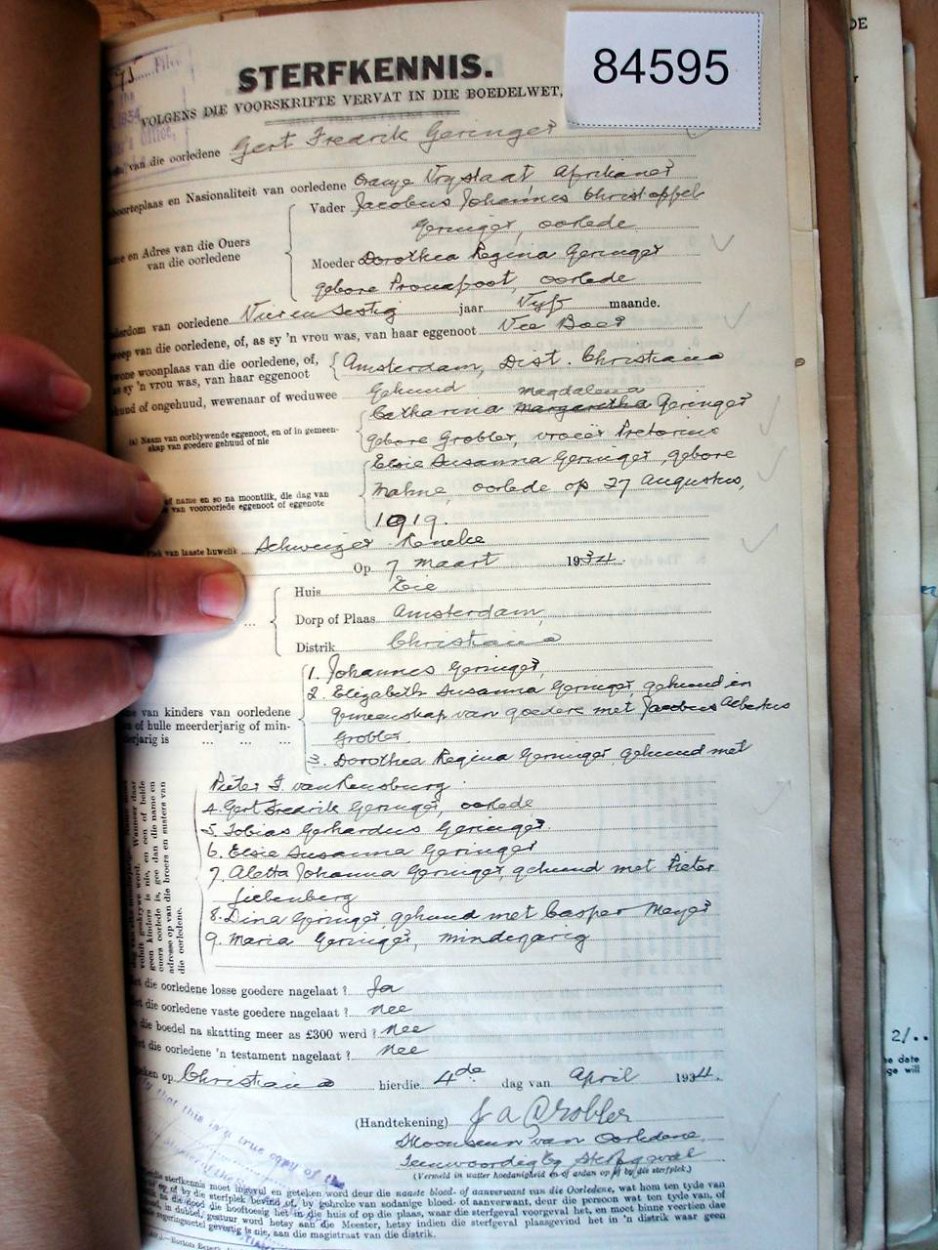 84595
STERFKENNIS.
VOLGENS DIE VOORSKRIFTE VERVAT IN DIE BOEDELWET,
van die oorledene Gert Fredrik Geringer
Geboorteplaas en Nasionaliteit van oorledene Oranje Vrystaat Afrikaner
Vader Jacobus Johannes Christoffel
Geringer, oorlede
en Adres van die Ouers
van die oorledene
Moeder Dorothea Regina Geringer
gebore Pronkpoot, oorlede
van oorledene Vier en Sestig jaar Vyf maande.
van die oorledene, of, as sy 'n vrou was, van haar eggenoot Vee Boer
woonplaas van die oorledene, of,
as sy 'n vrou was, van haar eggenoot
Amsterdam, Dist. Christiana
of ongehuud, wewenaar of weduwee Gehuud
Magdalena
Catharina Margaretha Geringer
(a) Naam van oorblywende eggenoot, en of in gemeen-
skap van goedere gehuud of nie
gebore Grobler, vroeër Pretorius
Elsie Susanna Geringer, gebore
name en so na moontlik, die dag van
van vooroorlede eggenoot of eggenote
Mahne, oorlede op 27 Augustus,
1919.
van laaste huwelik Schweizer Reneke
Op 7 Maart 1934.
Huis
Dorp of Plaas Amsterdam,
Distrik Christiana
1. Johannes Geringer,
2. Elizabeth Susanna Geringer, gehuud in
gemeenskap van goedere met Jacobus Albertus
van kinders van oorledene
of hulle meerderjarig of min-
derjarig is ... ... ...
Grobler
3. Dorothea Regina Geringer gehuud met
Pieter J. van Rensburg
4. Gert Fredrik Geringer, oorlede
5. Tobias Gerhardus Geringer.
6. Elsie Susanna Geringer
7. Aletta Johanna Geringer, gehuud met Pieter
Liebenberg
8. Dina Geringer, gehuud met Casper Meyer
9. Maria Geringer, minderjarig
die oorledene losse goedere nagelaat? Ja
die oorledene vaste goedere nagelaat? Nee
die boedel na skatting meer as £300 werd? Nee
die oorledene 'n testament nagelaat? Nee
op Christiana hierdie 4de dag van April 1934.
(Handtekening) J A Grobler
Skoonseun van Oorledene
Teenwoordig by sterfgeval
(Vermeld in watter hoedanigheid en of ardan op of by die sterfplek.)
that this is a true copy of the
sterfkennis moet ingevul en geteken word deur die naaste bloed- of aanverwant van die Oorledene, wat hom ten tyde van
of by die sterfplek bevind of, by gebreke van sodanige bloed- of aanverwant, deur die persoon wat ten tyde van, of
die dood die hooftoesig het in die huis of op die plaas, waar die sterfgeval voorgeval het, en moet binne veertien dae
in dubbel, gestuur word hetsy aan die Meester, hetsy indien die sterfgeval plaasgevind het in 'n distrik waar geen
gevestig is nie, aan die magistraat van die distrik.
2/..